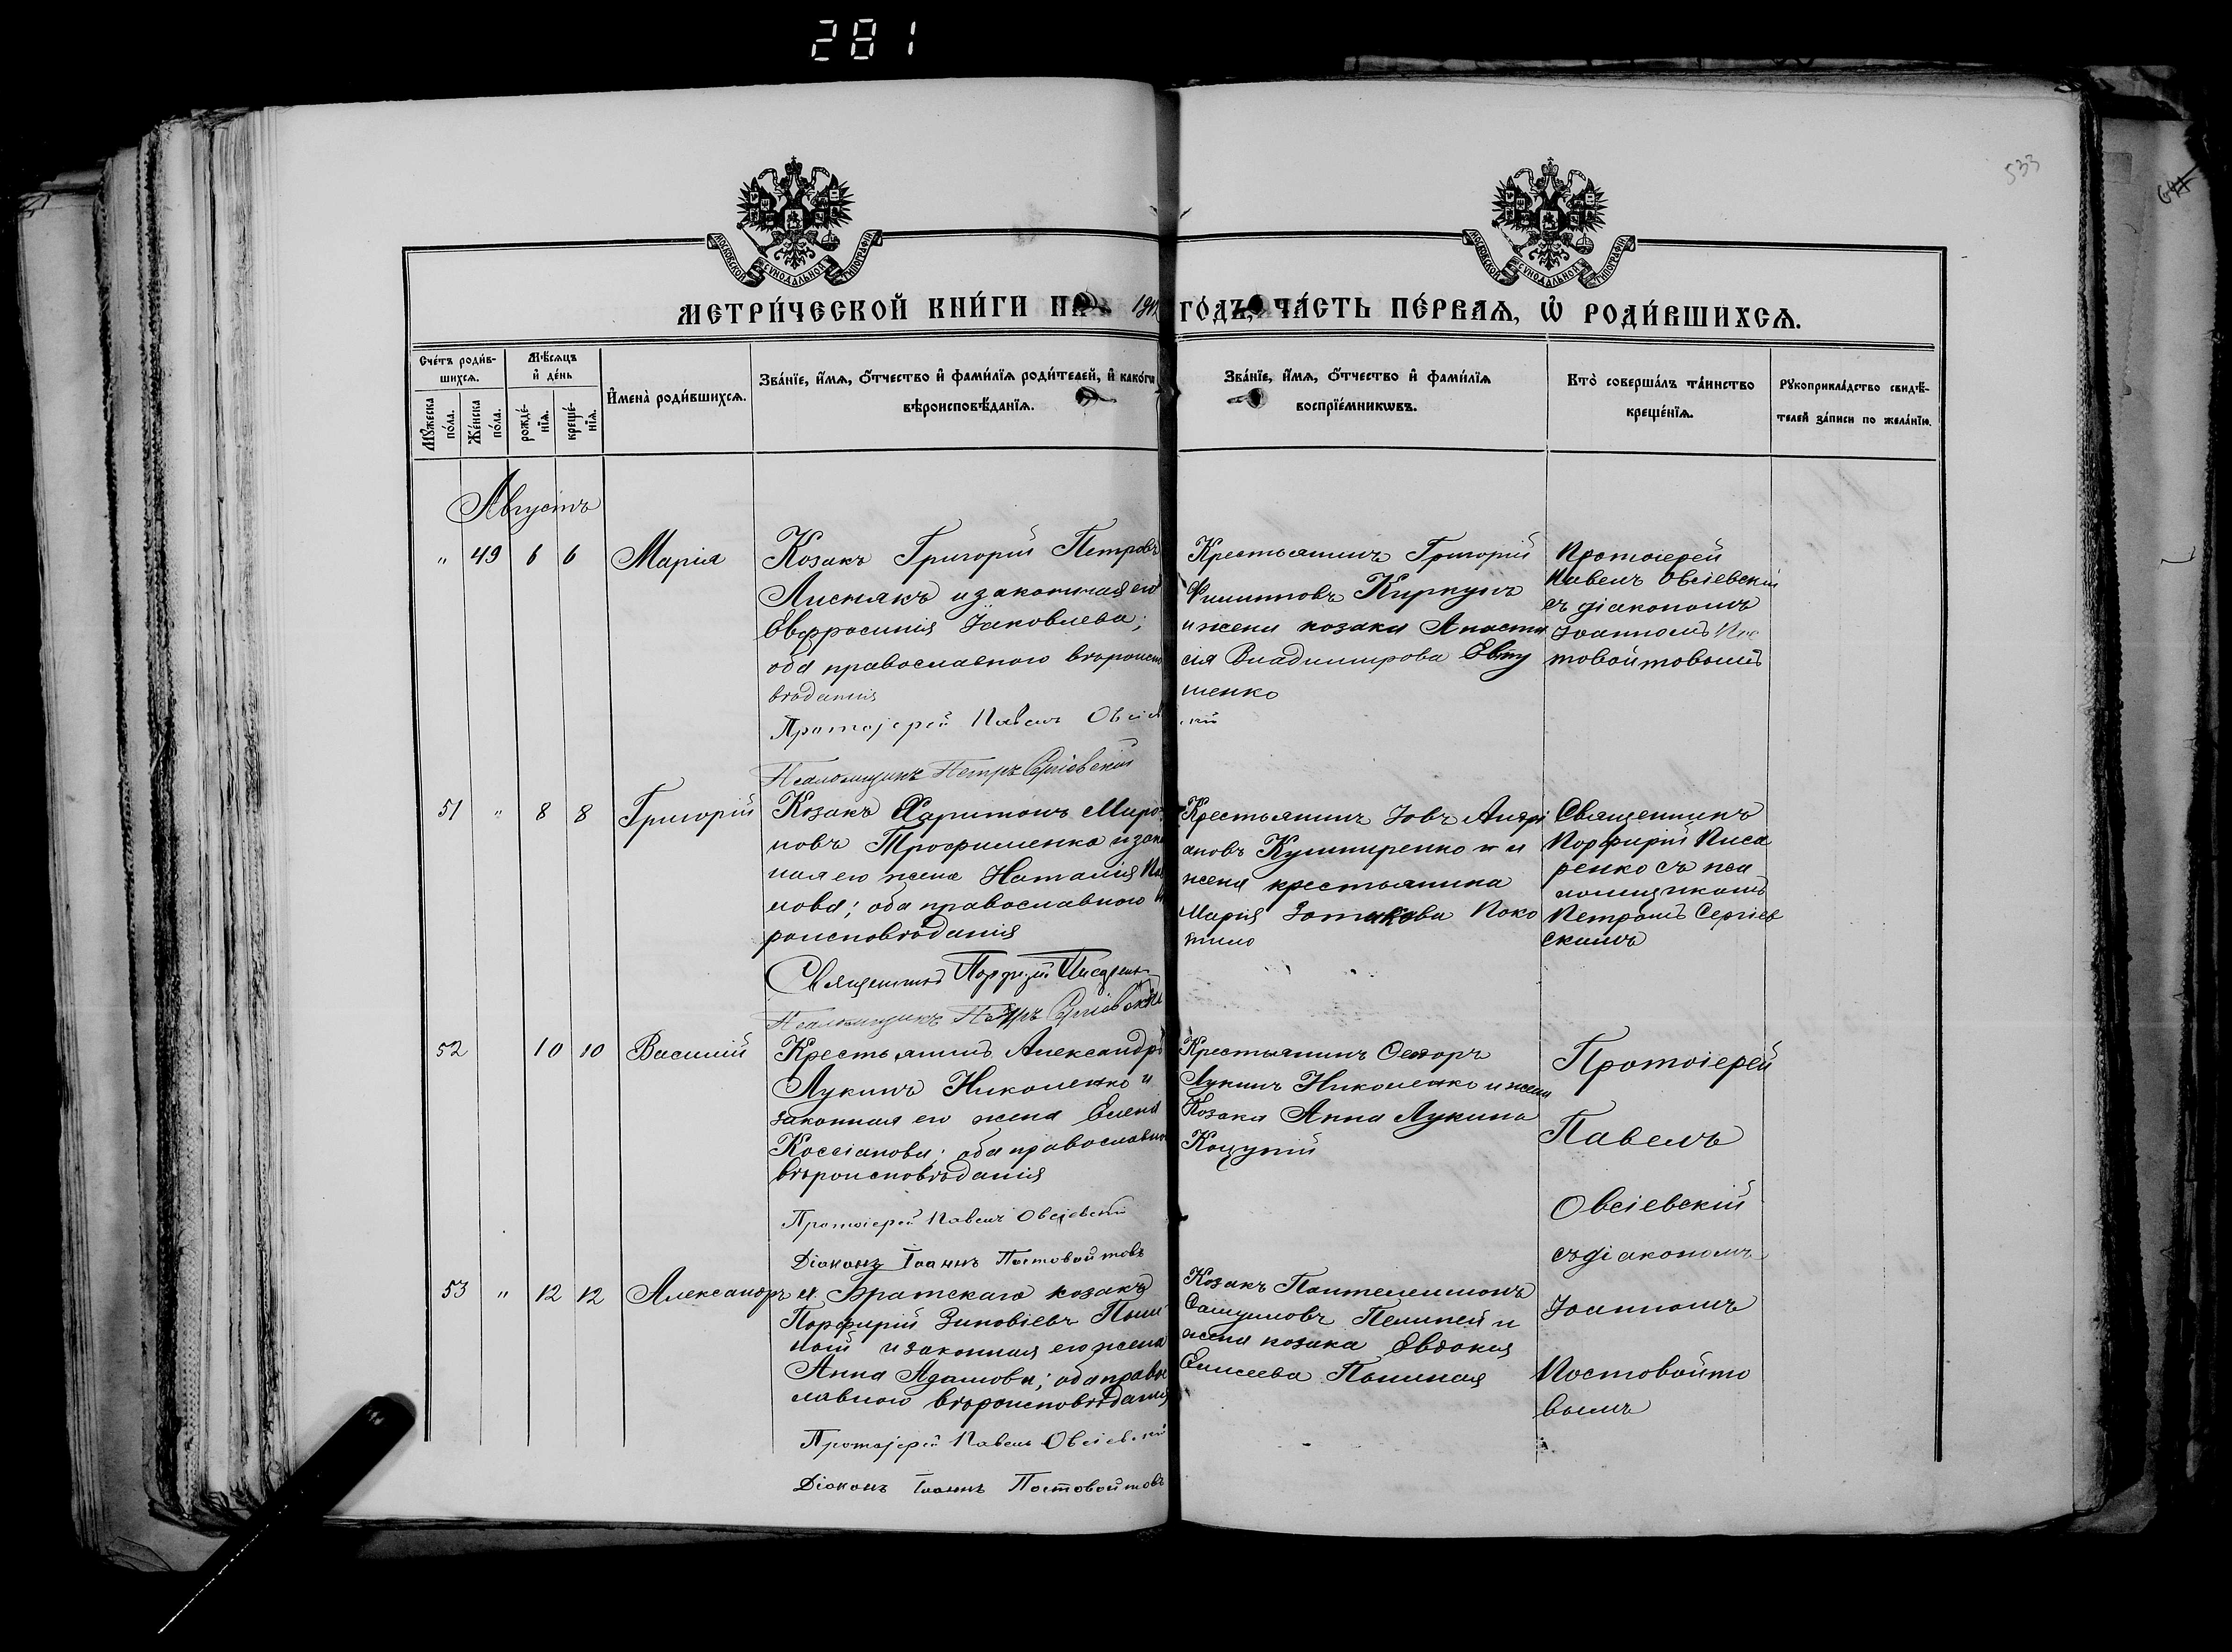 281
533
МОСКОВСКОЙ СѴНОДАЛЬНОЙ ТИПОГРАФІИ
МОСКОВСКОЙ СѴНОДАЛЬНОЙ ТИПОГРАФІИ
МЕТРИ́ЧЕСКОЙ КНИ́ГИ НА ГО́ДЪ, ЧА́СТЬ ПЕ́РВАѦ, Ѡ҆ РОДИ́ВШИХСѦ.
Сче́тъ роди́в-
шихсѧ.
Мѣ́сѧцъ
и҆ де́нь
Мꙋ́жеска
по́ла.
Же́нска
по́ла.
рожде́-
нїѧ.
креще́-
нїѧ.
И҆мена̀ роди́вшихсѧ.
Зва́нїе, и҆́мѧ, ѻ҆́тчество и҆ фами́лїѧ роди́телей, и҆ како́гѡ
вѣроисповѣ́данїѧ.
Зва́нїе, и҆́мѧ, ѻ҆́тчество и҆ фами́лїѧ
воспрїе́мникѡвъ.
Кто̀ соверша́лъ та́инство
креще́нїѧ.
Рꙋкоприкла́дство свидѣ́-
телей за́писи по жела́нїю.
Августъ
" 49 6 6 Марія
Козакъ Григорій Петровъ
Лиснякъ и законная его
Евфросинія Іаковлева;
оба православнаго вѣроиспо
вѣданія
Протоіерей Павелъ Овсіевскій
Псаломщикъ Петръ Сергіевскій
Крестьянинъ Григорій
Филипповъ
и жена козака Анаста
сія Владимирова Евту
шенко
Протоіерей
Павелъ Овсіевскій
съ діакономъ
Іоанномъ Пос
товойтовымъ
51 " 8 8 Григорій
Козакъ Харитонъ Миро
новъ Трофименко и закон
ная его жена Наталія
нова; оба православнаго вѣ
роисповѣданія
Священникъ Порфирій Писаренко
Псаломщикъ Петръ Сергіевскій
Крестьянинъ Іовъ Андрі
ановъ Кушниренко и
жена крестьянина
Марія Поко
тило
Священникъ
Порфирій Писа
ренко съ пса
ломщикомъ
Петромъ Сергіев
скимъ
52 10 10 Василій
Крестьянинъ Александръ
Лукинъ Николенко и
законная его жена Елена
Коссіанова; оба православнаго
вѣроисповѣданія
Протоіерей Павелъ Овсіевскій
Діаконъ Іоаннъ Постовойтовъ
Крестьянинъ Ѳеодоръ
Лукинъ Николенко и жена
Козака Анна Лукина
Коцупій
Протоіерей
Павелъ
Овсіевскій
съ діакономъ
Іоанномъ
Постовойто
вымъ
53 " 12 12 Александръ
м. Братскаго козакъ
Порфирій Зиновіевъ
и законная его жена
Анна Адамова; оба право
славнаго вѣроисповѣданія
Протоіерей Павелъ Овсіевскій
Діаконъ Іоаннъ Постовойтовъ
Козакъ Пантелеимонъ
и
жена козака Евдокія
Елисеева